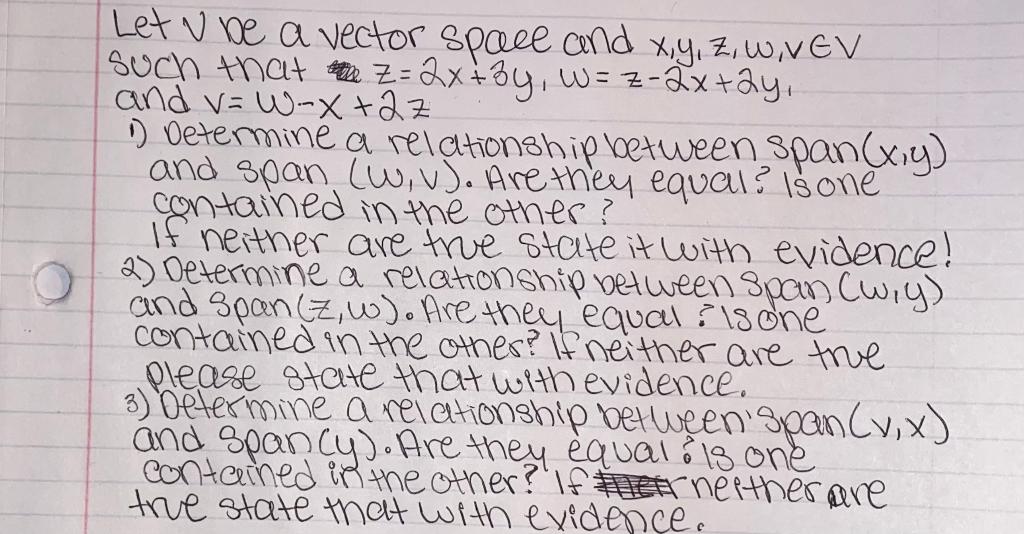 Let V be a vector space and x,y,z,w,v∈V
such that z=2x+3y, w=z-2x+2y,
and v=w-x+2z
1) Determine a relationship between span(x,y)
and span (w,v). Are they equal? Is one
contained in the other?
If neither are true state it with evidence!
2) Determine a relationship between Span(w,y)
and Span(z,w). Are they equal? Is one
contained in the other? If neither are true
please state that with evidence.
3) Determine a relationship between Span(v,x)
and Span(y). Are they equal? Is one
contained in the other? If neither are
true state that with evidence.